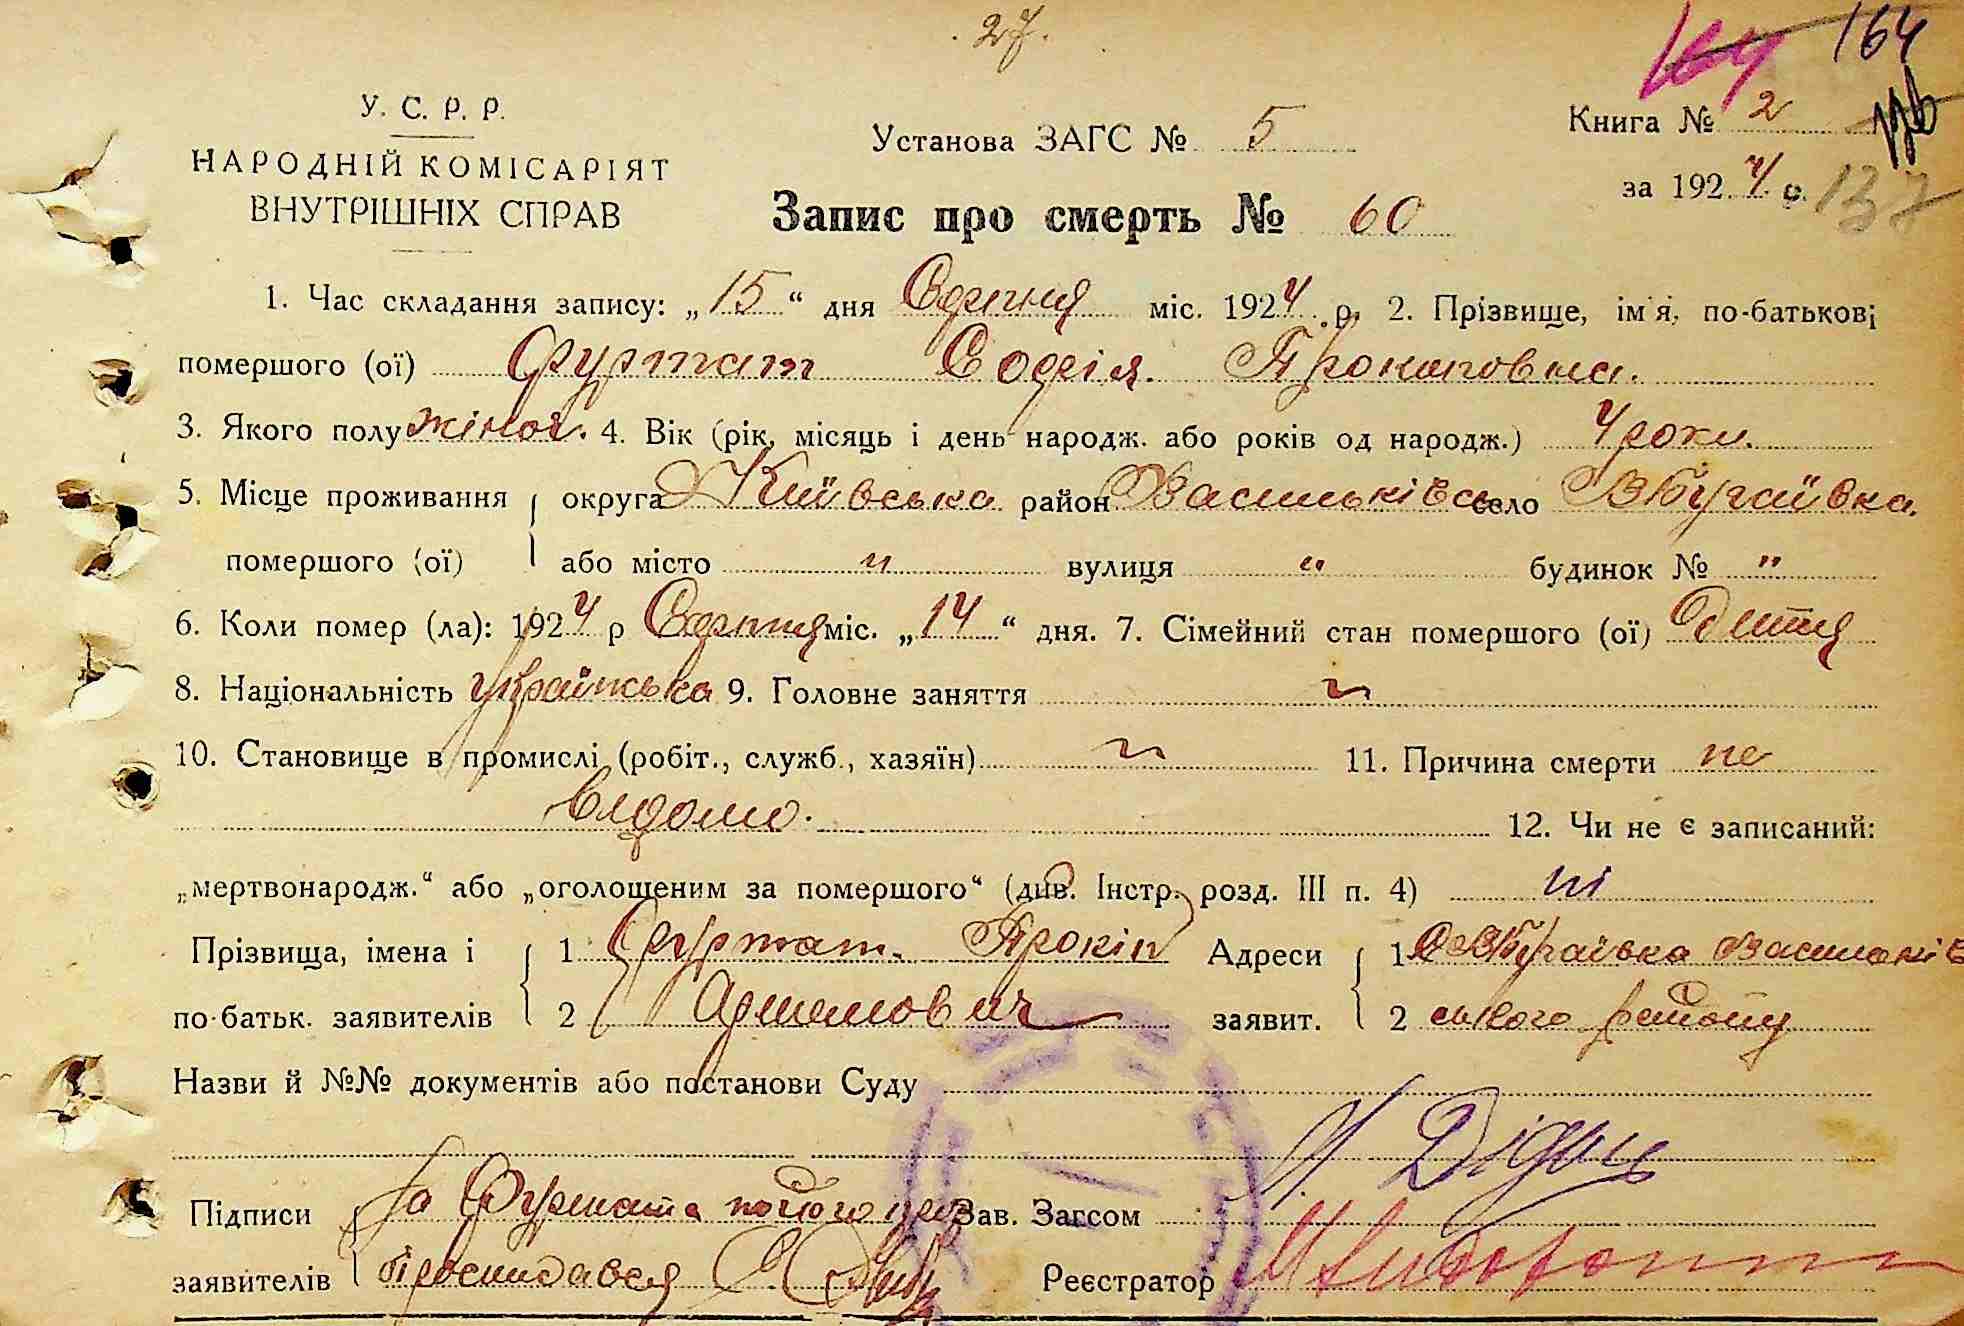 . 27 .
164 164
У. С. Р. Р.
НАРОДНІЙ КОМІСАРІЯТ
ВНУТРІШНІХ СПРАВ
Установа ЗАГС № 5
Книга № 2
за 1924 р. 137
Запис про смерть № 60
1. Час складання запису: „15“ дня Серпня міс. 1924 р. 2. Прізвище, ім'я, по-батькові
помершого (ої) Фурмат Софія Прокиповна.
3. Якого полу жіноч. 4. Вік (рік, місяць і день народж. або років од народж.) 4 роки.
5. Місце проживання округа Київська район Васильківсь село Збугаївка.
помершого (ої) або місто " вулиця " будинок № "
6. Коли помер (ла): 1924 р Серпня міс. „14“ дня. 7. Сімейний стан помершого (ої) Диттля
8. Національність українська 9. Головне заняття "
10. Становище в промислі (робіт., служб., хазяїн) " 11. Причина смерти не
відомо. 12. Чи не є записаний:
„мертвонародж.“ або „оголошеним за помершого“ (див. Інстр. розд. III п. 4) ні
Прізвища, імена і 1 Фурмат Прокіп Адреси 1 Збугаївка Васильків
по-батьк. заявителів 2 Артемович заявит. 2 ського району
Назви й №№ документів або постанови Суду
Підписи За Фурмата по його Зав. Загсом М. Дідець
заявителів Реєстратор